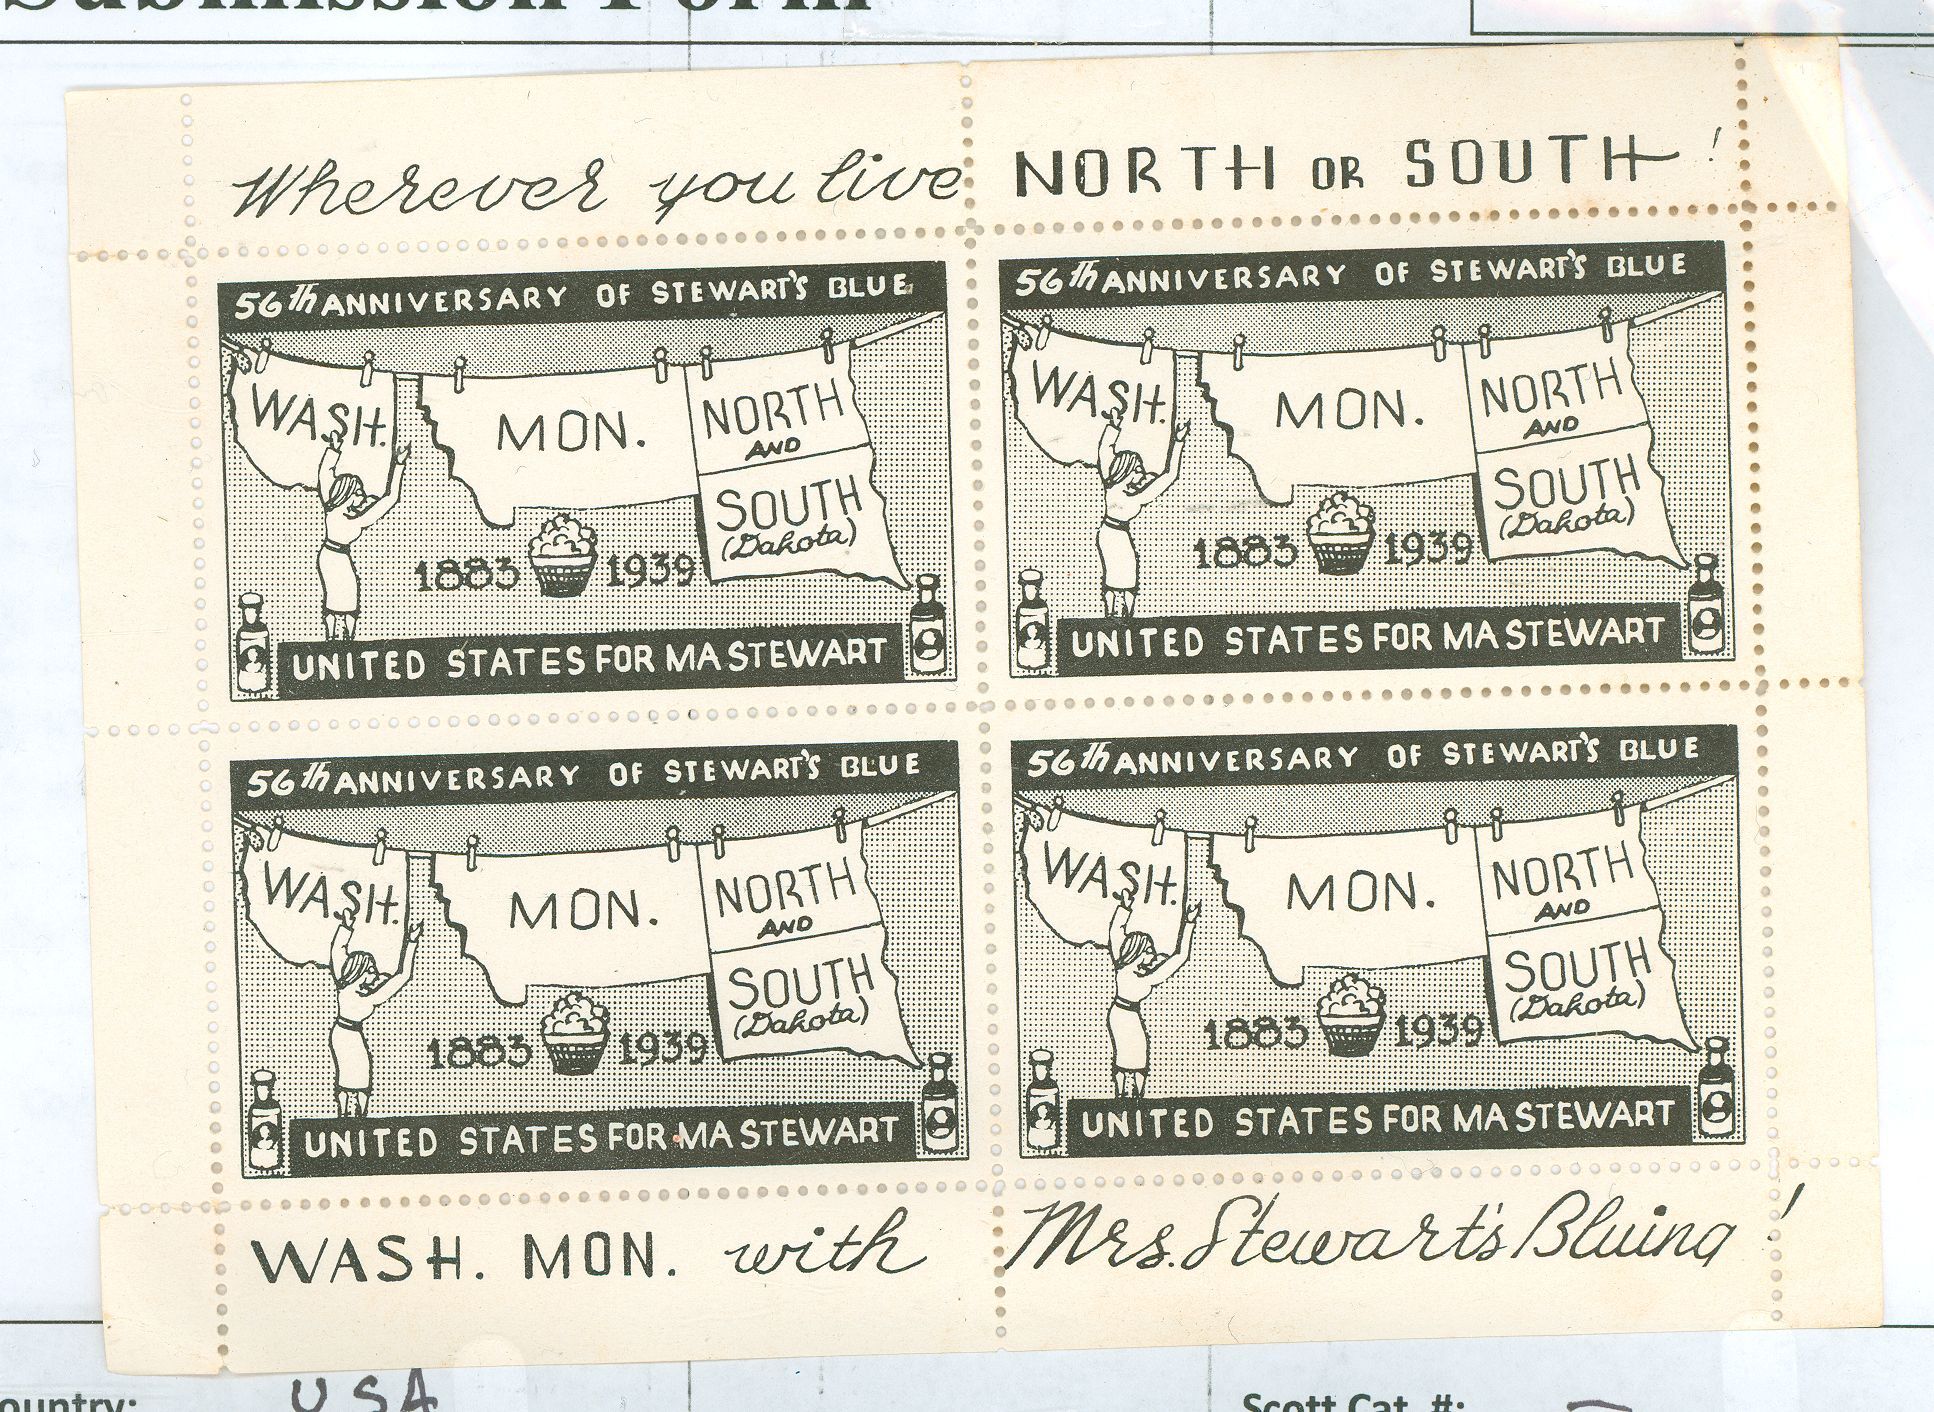 Submission Form
Wherever you live NORTH OR SOUTH!
56th ANNIVERSARY OF STEWART'S BLUE
WASH.
MON.
NORTH
AND
SOUTH
(Dakota)
1883 1939
UNITED STATES FOR MA STEWART
56th ANNIVERSARY OF STEWART'S BLUE
WASH.
MON.
NORTH
AND
SOUTH
(Dakota)
1883 1939
UNITED STATES FOR MA STEWART
56th ANNIVERSARY OF STEWART'S BLUE
WASH.
MON.
NORTH
AND
SOUTH
(Dakota)
1883 1939
UNITED STATES FOR MA STEWART
56th ANNIVERSARY OF STEWART'S BLUE
WASH.
MON.
NORTH
AND
SOUTH
(Dakota)
1883 1939
UNITED STATES FOR MA STEWART
WASH. MON. with Mrs. Stewart's Bluing!
ountry: USA Scott Cat. #: –